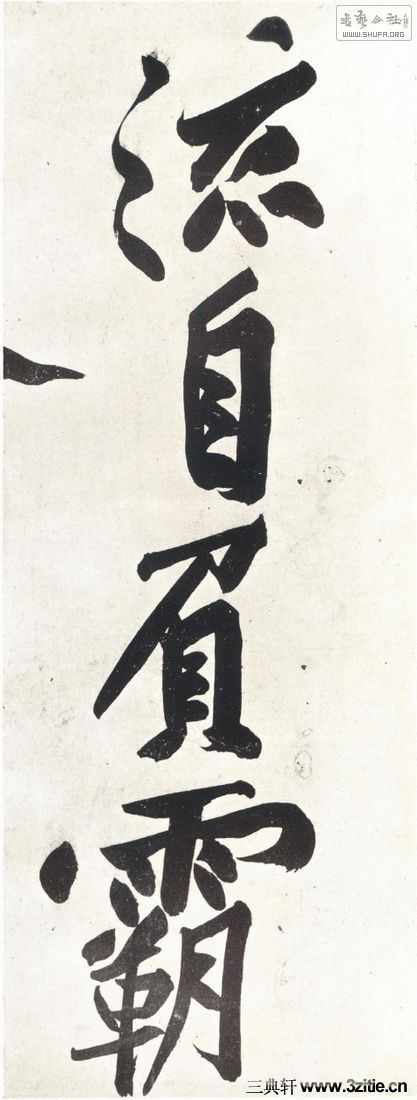 流自眉霸
書藝公社
WWW.SHUFA.ORG
三典轩 www.3zitie.cn